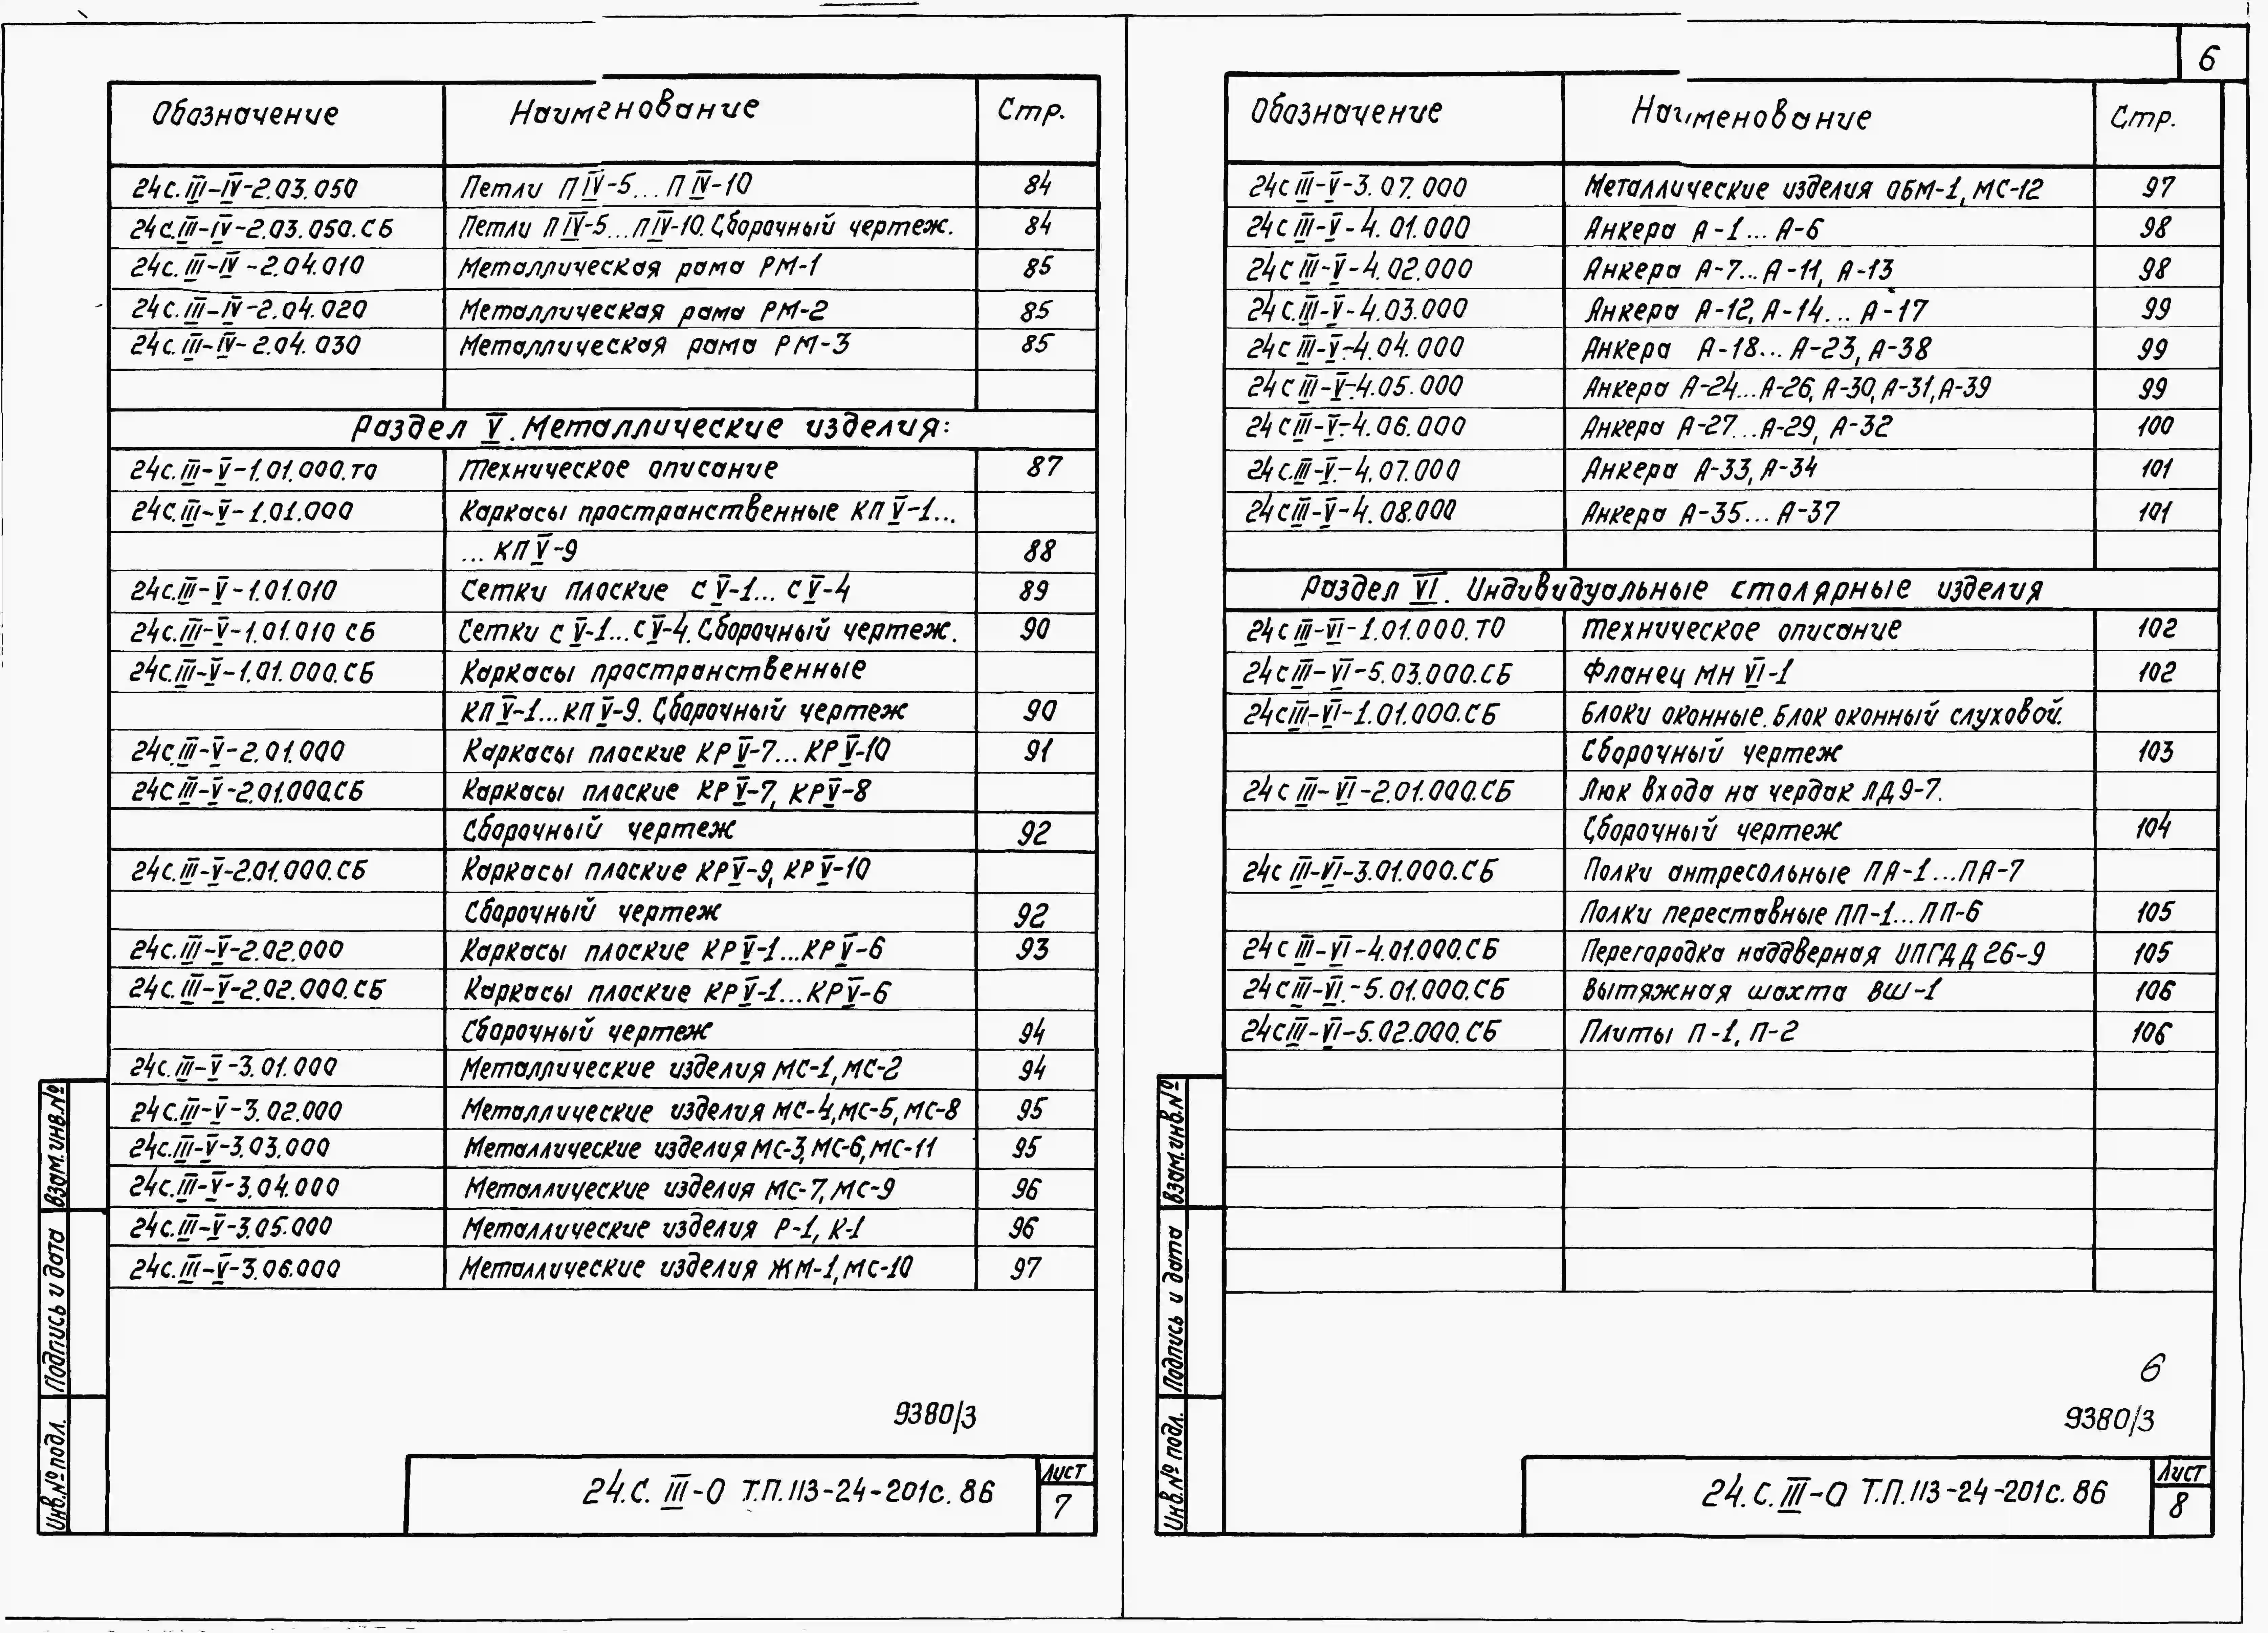 6
Обозначение Наименование Стр.
24с.III-IV-2.03.050 Петли ПIV-5...ПIV-10 84
24с.III-IV-2.03.050.СБ Петли ПIV-5...ПIV-10. Сборочный чертеж. 84
24с.III-IV-2.04.010 Металлическая рама РМ-1 85
24с.III-IV-2.04.020 Металлическая рама РМ-2 85
24с.III-IV-2.04.030 Металлическая рама РМ-3 85
Раздел V. Металлические изделия:
24с.III-V-1.01.000.ТО Техническое описание 87
24с.III-V-1.01.000 Каркасы пространственные КПV-1...
...КПV-9 88
24с.III-V-1.01.010 Сетки плоские СV-1...СV-4 89
24с.III-V-1.01.010 СБ Сетки СV-1...СV-4. Сборочный чертеж. 90
24с.III-V-1.01.000.СБ Каркасы пространственные
КПV-1...КПV-9. Сборочный чертеж 90
24с.III-V-2.01.000 Каркасы плоские КРV-7...КРV-10 91
24с III-V-2.01.000.СБ Каркасы плоские КРV-7, КРV-8
Сборочный чертеж 92
24с.III-V-2.01.000.СБ Каркасы плоские КРV-9, КРV-10
Сборочный чертеж 92
24с.III-V-2.02.000 Каркасы плоские КРV-1...КРV-6 93
24с.III-V-2.02.000.СБ Каркасы плоские КРV-1...КРV-6
Сборочный чертеж 94
24с.III-V-3.01.000 Металлические изделия МС-1, МС-2 94
24с.III-V-3.02.000 Металлические изделия МС-4, МС-5, МС-8 95
24с.III-V-3.03.000 Металлические изделия МС-3, МС-6, МС-11 95
24с.III-V-3.04.000 Металлические изделия МС-7, МС-9 96
24с.III-V-3.05.000 Металлические изделия Р-1, К-1 96
24с.III-V-3.06.000 Металлические изделия ЖМ-1, МС-10 97
9380/3
24.С.III-О Т.П.113-24-201с.86
Лист
7
Взам.инв.№
Подпись и дата
Инв.№ подл.
Обозначение Наименование Стр.
24с III-V-3.07.000 Металлические изделия ОБМ-1, МС-12 97
24с III-V-4.01.000 Анкера А-1...А-6 98
24с III-V-4.02.000 Анкера А-7...А-11, А-13 98
24с.III-V-4.03.000 Анкера А-12, А-14...А-17 99
24с III-V-4.04.000 Анкера А-18...А-23, А-38 99
24с III-V-4.05.000 Анкера А-24...А-26, А-30, А-31, А-39 99
24с III-V-4.06.000 Анкера А-27...А-29, А-32 100
24с.III-V-4.07.000 Анкера А-33, А-34 101
24с III-V-4.08.000 Анкера А-35...А-37 101
Раздел VI. Индивидуальные столярные изделия
24с III-VI-1.01.000.ТО Техническое описание 102
24с III-VI-5.03.000.СБ Фланец МН VI-1 102
24с III-VI-1.01.000.СБ Блоки оконные. Блок оконный слуховой.
Сборочный чертеж 103
24с III-VI-2.01.000.СБ Люк входа на чердак ЛД9-7.
Сборочный чертеж 104
24с III-VI-3.01.000.СБ Полки антресольные ПА-1...ПА-7
Полки переставные ПП-1...ПП-6 105
24с III-VI-4.01.000.СБ Перегородка наддверная ИПГДД26-9 105
24с III-VI-5.01.000.СБ Вытяжная шахта ВШ-1 106
24с III-VI-5.02.000.СБ Плиты П-1, П-2 106
6
9380/3
24.С.III-О Т.П.113-24-201с.86
Лист
8
Взам.инв.№
Подпись и дата
Инв.№ подл.